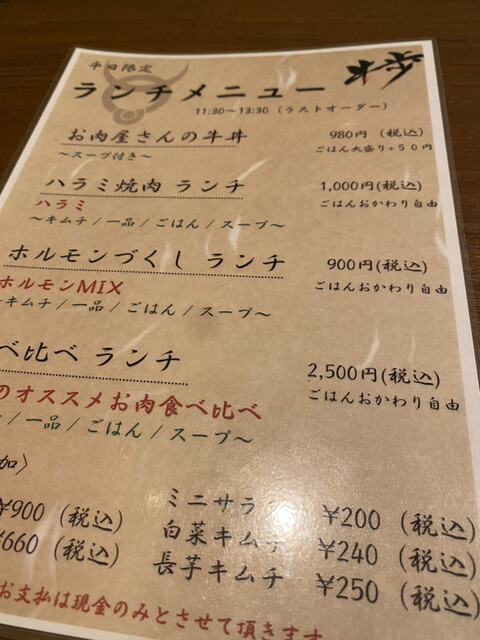 平日限定
ランチメニュー
11:30~13:30 (ラストオーダー)
お肉屋さんの牛丼 980円 (税込)
~スープ付き~ ごはん大盛り+50円
ハラミ焼肉 ランチ 1,000円(税込)
ハラミ ごはんおかわり自由
~キムチ / 一品 / ごはん / スープ~
ホルモンづくし ランチ 900円(税込)
ホルモンMIX ごはんおかわり自由
キムチ / 一品 / ごはん / スープ~
べ比べ ランチ 2,500円(税込)
のオススメお肉食べ比べ ごはんおかわり自由
/ 一品 / ごはん / スープ~
加〉
¥900 (税込) ミニサラ ¥200 (税込)
¥660 (税込) 白菜キムチ ¥240 (税込)
長芋キムチ ¥250 (税込)
お支払は現金のみとさせて頂きます